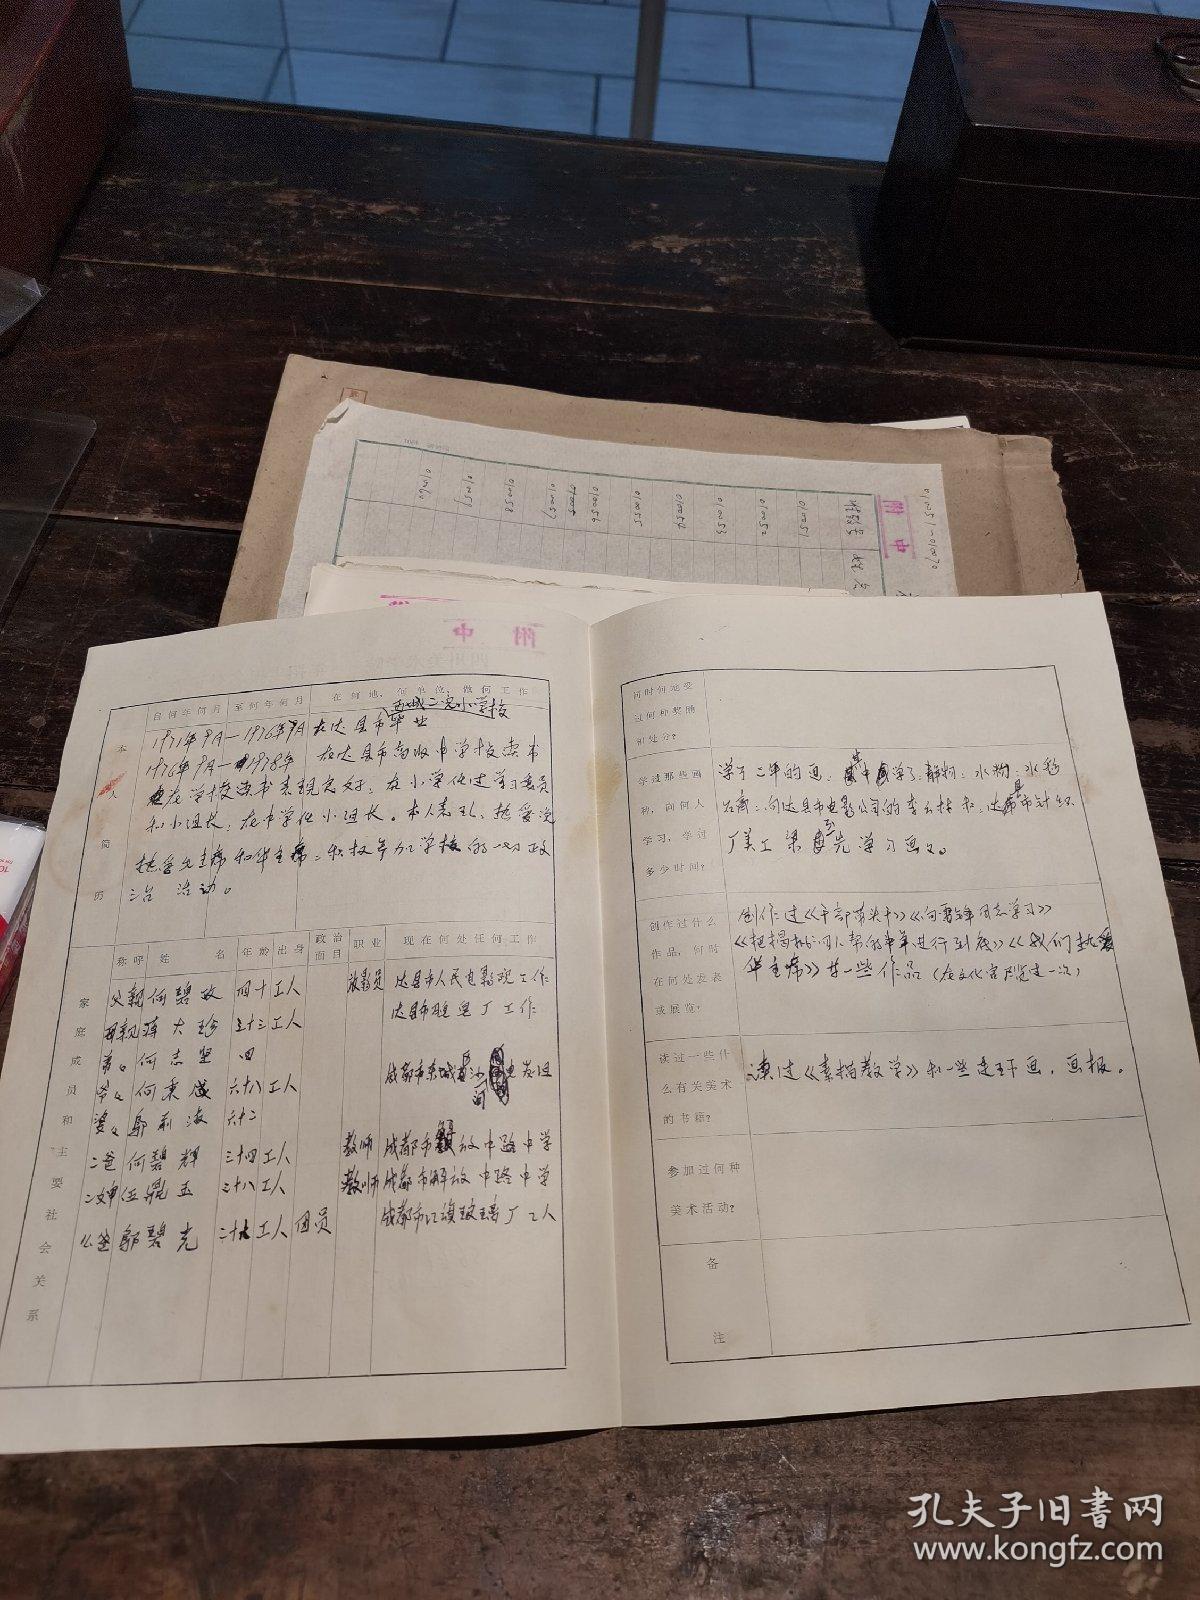 附中
010051～010070
准考号
010051
010052
010053
010054
010055
010056
010057
010058
010059
010060
附中
自何年何月 至何年何月 在何地、何单位、做何工作
本人简历
西城二完小学校
1971年9月—1976年9月 在达县市毕业
1976年9月—1978年 在达县市高级中学校读书
在学校读书表现良好，在小学任过学习委员
和小组长，在中学任小组长。本人热爱党
热爱毛主席和华主席，积极参加学校的一切政
治活动。
家庭成员和主要社会关系
称呼 姓名 年龄 出身 政治面目 职业 现在何处任何工作
父亲 何碧政 四十 工人 放影员 达县市人民电影院工作
母亲 蒋大珍 三十三 工人 达县市 厂工作
弟弟 何志坚 四
爷爷 何秉成 六十八 工人 成都市东城
婆婆 六十二
二爸 何碧辉 三十四 工人 教师 成都市解放中路中学
二婶 伍鼎玉 三十八 工人 教师 成都市解放中路中学
幺爸 邬碧克 二十九 工人 团员 成都市 玻璃厂工人
何时何地受过何种奖励和处分？
学过那些画种，向何人学习，学过多少时间？
学了二年的画，其中学了：静物、水粉、水彩
石膏：向达县市电影公司的李 ，达县市针织
厂美工梁 先学习画画。
创作过什么作品，何时在何处发表或展览？
创作过《干部带头干》《向雷锋同志学习》
《把揭批四人帮的斗争进行到底》《我们热爱
华主席》等一些作品（在文化宫展览过一次）
读过一些什么有关美术的书籍？
读过《素描教学》和一些连环画，画报。
参加过何种美术活动？
备注
孔夫子旧书网
www.kongfz.com